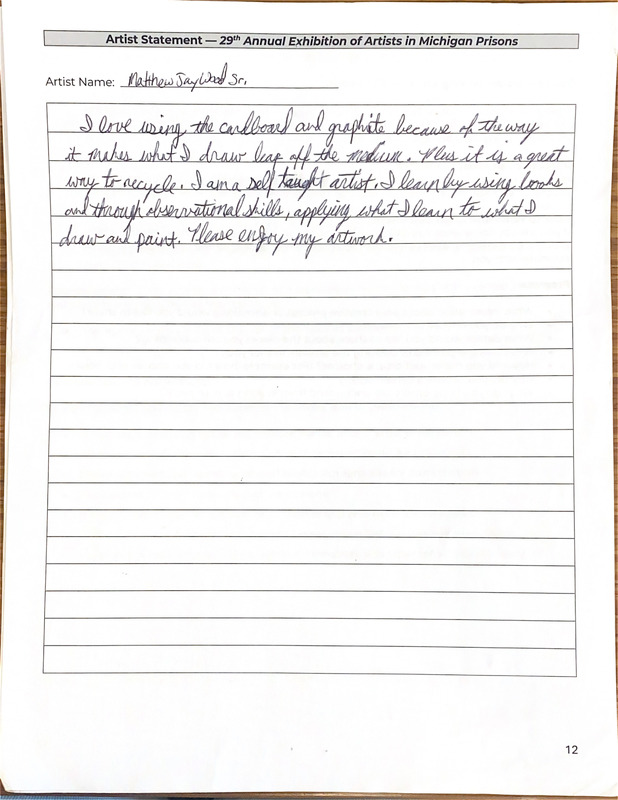 Artist Statement — 29th Annual Exhibition of Artists in Michigan Prisons
Artist Name: Matthew Jay Wood Sr.
I love using the cardboard and graphite because of the way
it makes what I draw leap off the medium. Plus it is a great
way to recycle. I am a self taught artist. I learn by using books
and through observational skills, applying what I learn to what I
draw and paint. Please enjoy my artwork.
12